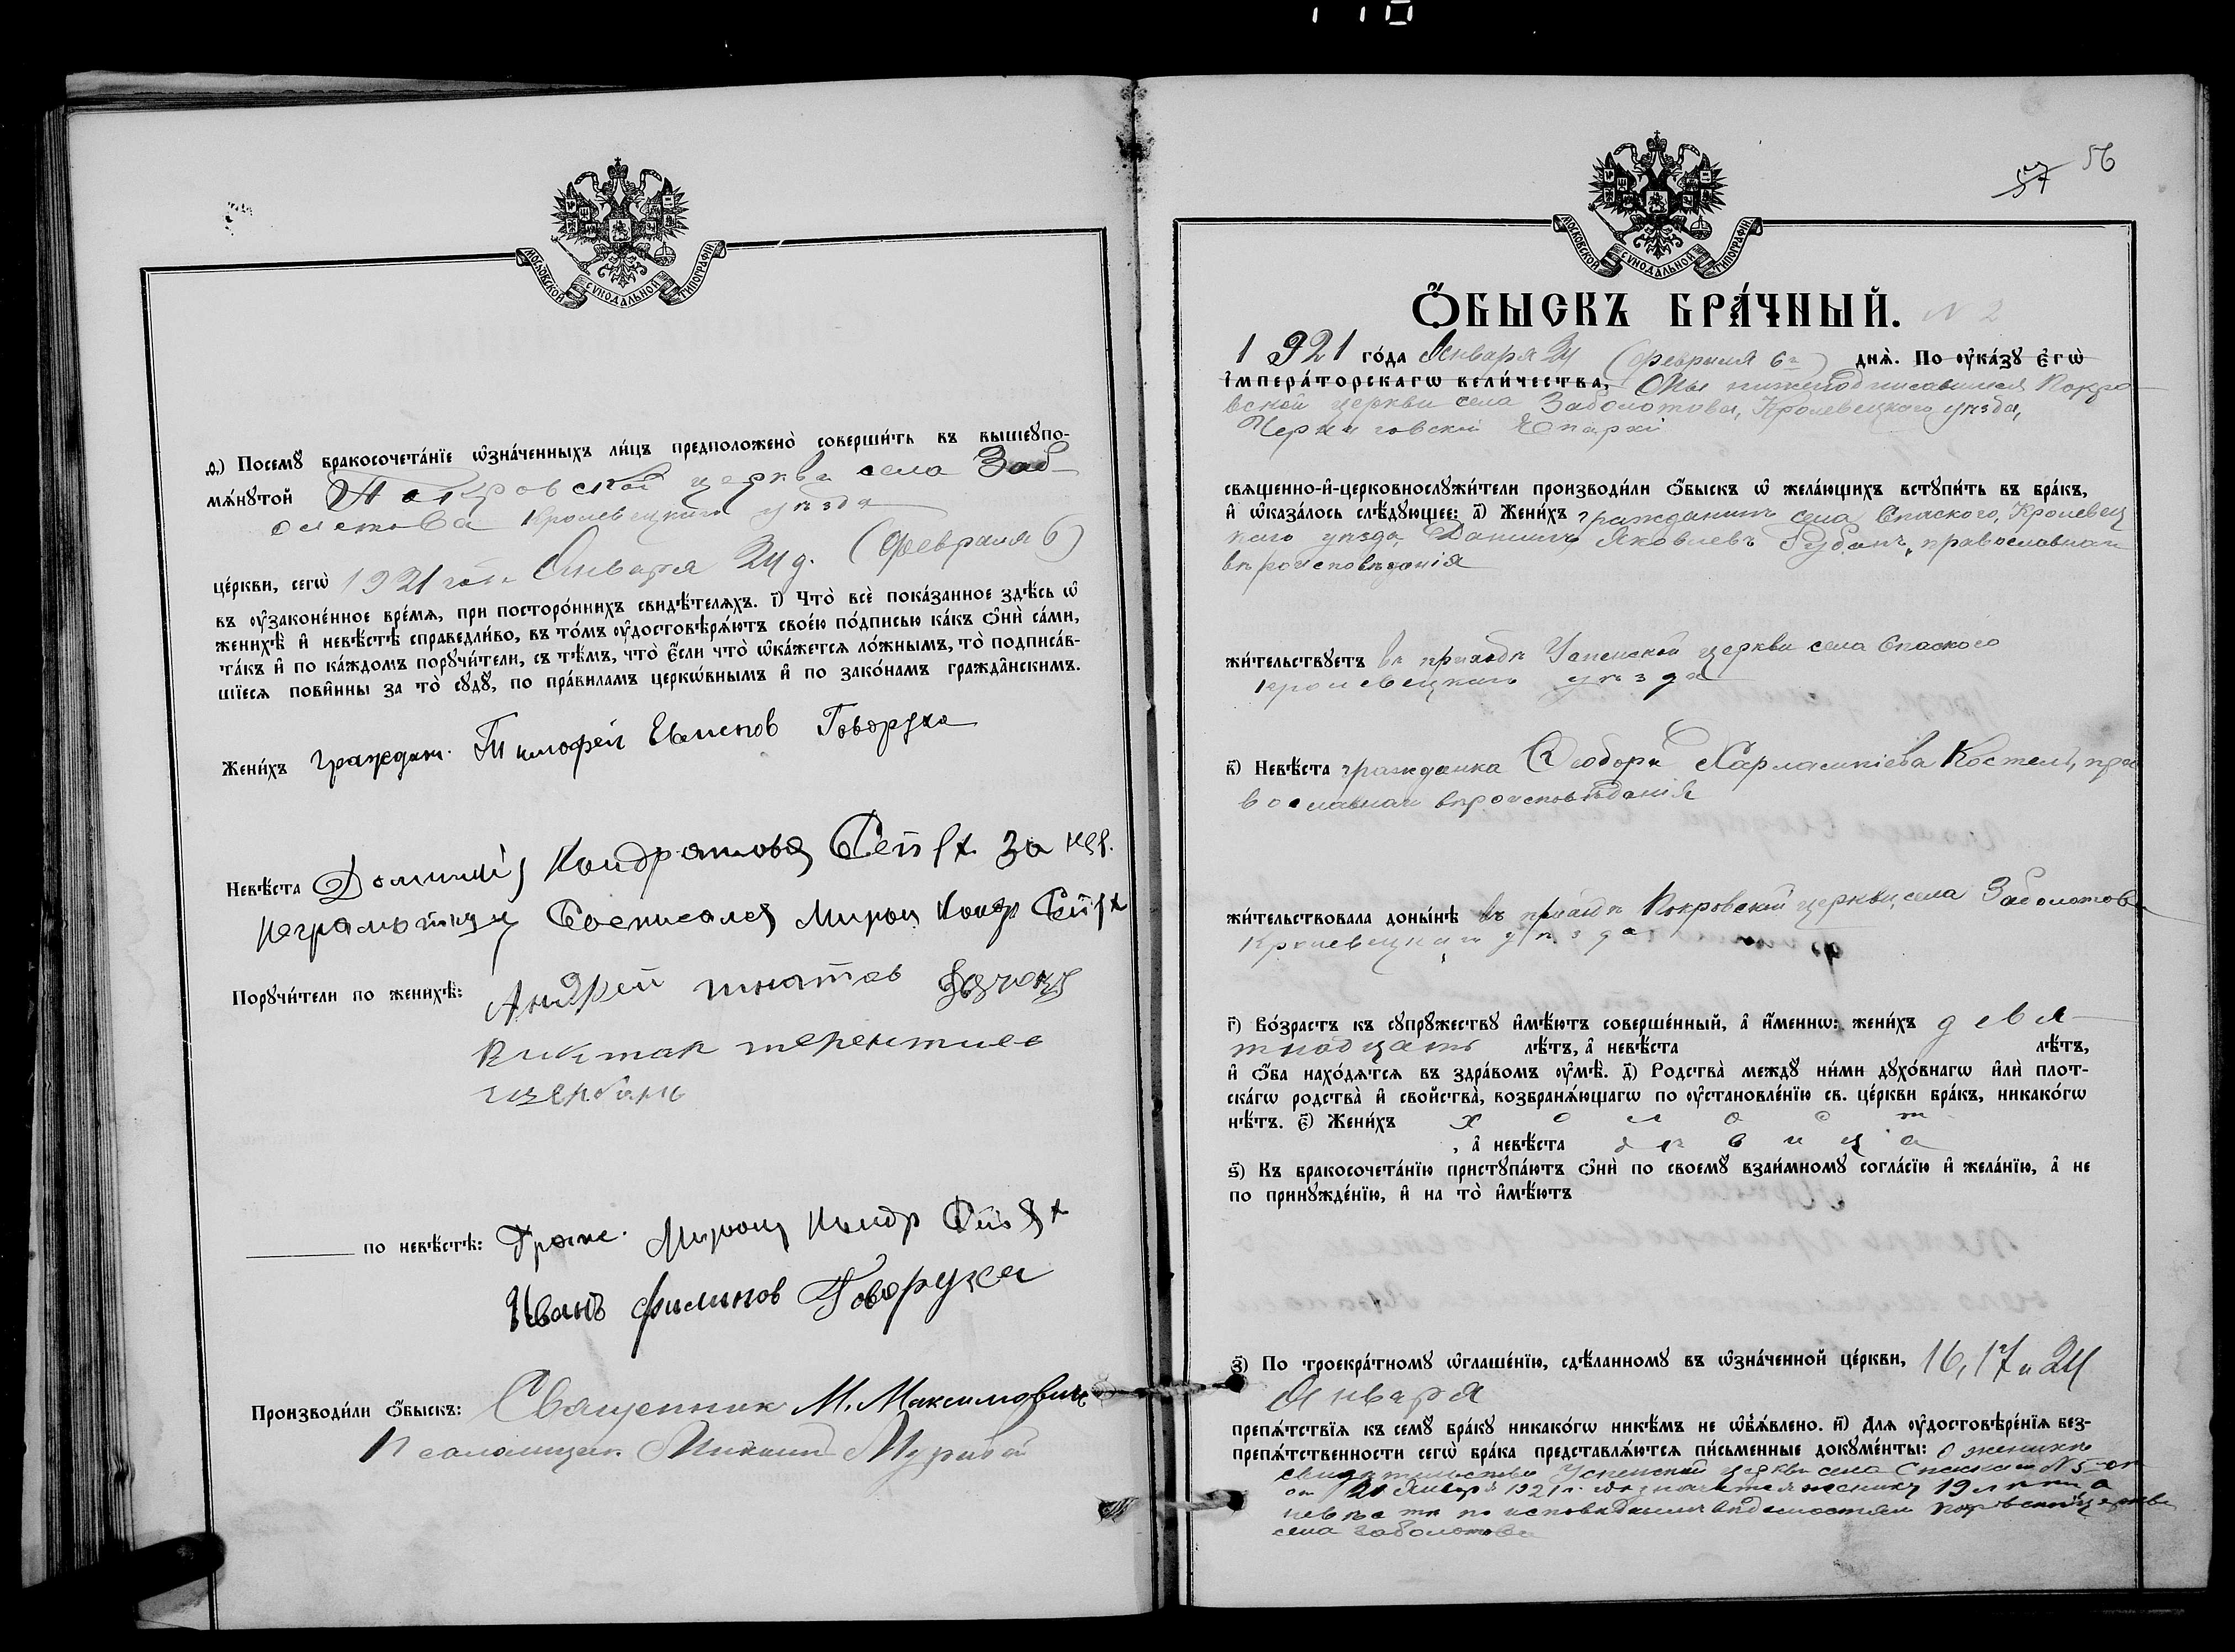 МОСКОВСКОЙ СѴНОДАЛЬНОЙ ТИПОГРАФІИ
ѳ҃.) Посемꙋ̀ бракосочета́нїе ѡ҆зна́ченныхъ ли́цъ предположено̀ соверши́ть въ вышеꙋпо-
мѧ́нꙋтой Покровской церкви села Заб-
олотова Кролевецкаго уѣзда
це́ркви, сегѡ̀ 1921 года Января 24 д. (Февраля 6)
въ ᲂу҆законе́нное вре́мѧ, при посторо́ннихъ свидѣ́телѧхъ. і҃) Что̀ всѐ пока́занное здѣ́сь ѡ҆
женихѣ̀ и҆ невѣ́стѣ справедли́во, въ то́мъ ᲂу҆достовѣрѧ́ютъ свое́ю по́дписью ка́къ ѻ҆нѝ са́ми,
та́къ и҆ по ка́ждомъ порꙋчи́тели, съ тѣ́мъ, что̀ є҆́сли что̀ ѡ҆ка́жетсѧ ло́жнымъ, то̀ подписа́в-
шїесѧ пови́нны за то̀ сꙋдꙋ̀, по пра́виламъ церкѡ́внымъ и҆ по зако́намъ гражда̑нскимъ.
Жени́хъ граждан. Тимофей Говоруха
Невѣ́ста Кондратова за нев.
неграмотную Росписался Мирон Конд.
Порꙋчи́тели по женихѣ̀: Андрей
Виктар терентиев
по невѣ́стѣ: Граж. Мирон Конд
Иванъ Филипов Говоруха
Производи́ли ѻ҆́быскъ: Священник М. Максимович
Псаломщик Михаил
57 56
МОСКОВСКОЙ СѴНОДАЛЬНОЙ ТИПОГРАФІИ
Ѻ҆́БЫСКЪ БРА́ЧНЫЙ. N 2
1921 го́да Января 24 (февраля 6го) днѧ̀. По ᲂу҆ка́зꙋ є҆гѡ̀
і҆мпера́торскагѡ вели́чества, Мы нижеподписавшиеся Покро-
вской церкви села Заболотова, Кролевецкого уѣзда,
Черниговской Епархіи
свѧщенно-и҆-церковнослꙋжи́тели производи́ли ѻ҆́быскъ ѡ҆ жела́ющихъ встꙋпи́ть въ бра́къ,
и҆ ѡ҆каза́лось слѣ́дꙋющее: а҃) Жени́хъ гражданинъ села Спаского, Кролевец
каго уѣзда, Даниилъ Яковлевъ Губанъ, православнаго
вѣроисповѣданія
жи́тельствꙋетъ въ приходѣ Успенской церкви села Спаского
Кролевецкаго уѣзда
в҃) Невѣ́ста гражданка Ѳеодора Харлампіева Костель, пра
вославнаго вѣроисповѣданія
жи́тельствовала доны́нѣ въ приходѣ Покровской церкви села Заболотова
Кролевецкаго уѣзда
г҃) Во́зрастъ къ сꙋпрꙋ́жествꙋ и҆мѣ́ютъ соверше́нный, а҆ и҆́меннѡ: жени́хъ девя-
тнадцать лѣ́тъ, а҆ невѣ́ста лѣ́тъ,
и҆ ѻ҆́ба нахо́дѧтсѧ въ здра́вомъ ᲂу҆мѣ̀. д҃) Родства̀ междꙋ̀ ни́ми дꙋхо́внагѡ и҆лѝ плот-
ска́гѡ родства̀ и҆ свойства̀, возбранѧ́ющагѡ по ᲂу҆становле́нїю св. це́ркви бра́къ, никако́гѡ
нѣ́тъ. є҃) Жени́хъ холост
, а҆ невѣ́ста дѣвица
ѕ҃) Къ бракосочета́нїю пристꙋпа́ютъ ѻ҆нѝ по своемꙋ̀ взаи́мномꙋ согла́сїю и҆ жела́нїю, а҆ не
по принꙋжде́нїю, и҆ на то̀ и҆мѣ́ютъ
з҃) По троекра́тномꙋ ѡ҆глаше́нїю, сдѣ́ланномꙋ въ ѡ҆зна́ченной це́ркви, 16, 17 и 24
Января
препѧ́тствїѧ къ семꙋ̀ бра́кꙋ никако́гѡ никѣ́мъ не ѡ҆б̾ѧ́влено. и҃) Длѧ ᲂу҆достовѣре́нїѧ без-
препѧ́тственности сегѡ̀ бра́ка представлѧ́ютсѧ пи́сьменные докꙋме́нты: О женихѣ
свидѣтельство Успенской церкви села Спаскаго N 5
от 21 Января 1921 г. жениху 19 лѣтъ а
невѣста по исповѣднымъ вѣдомостям Покровской церкви
села Заболотова